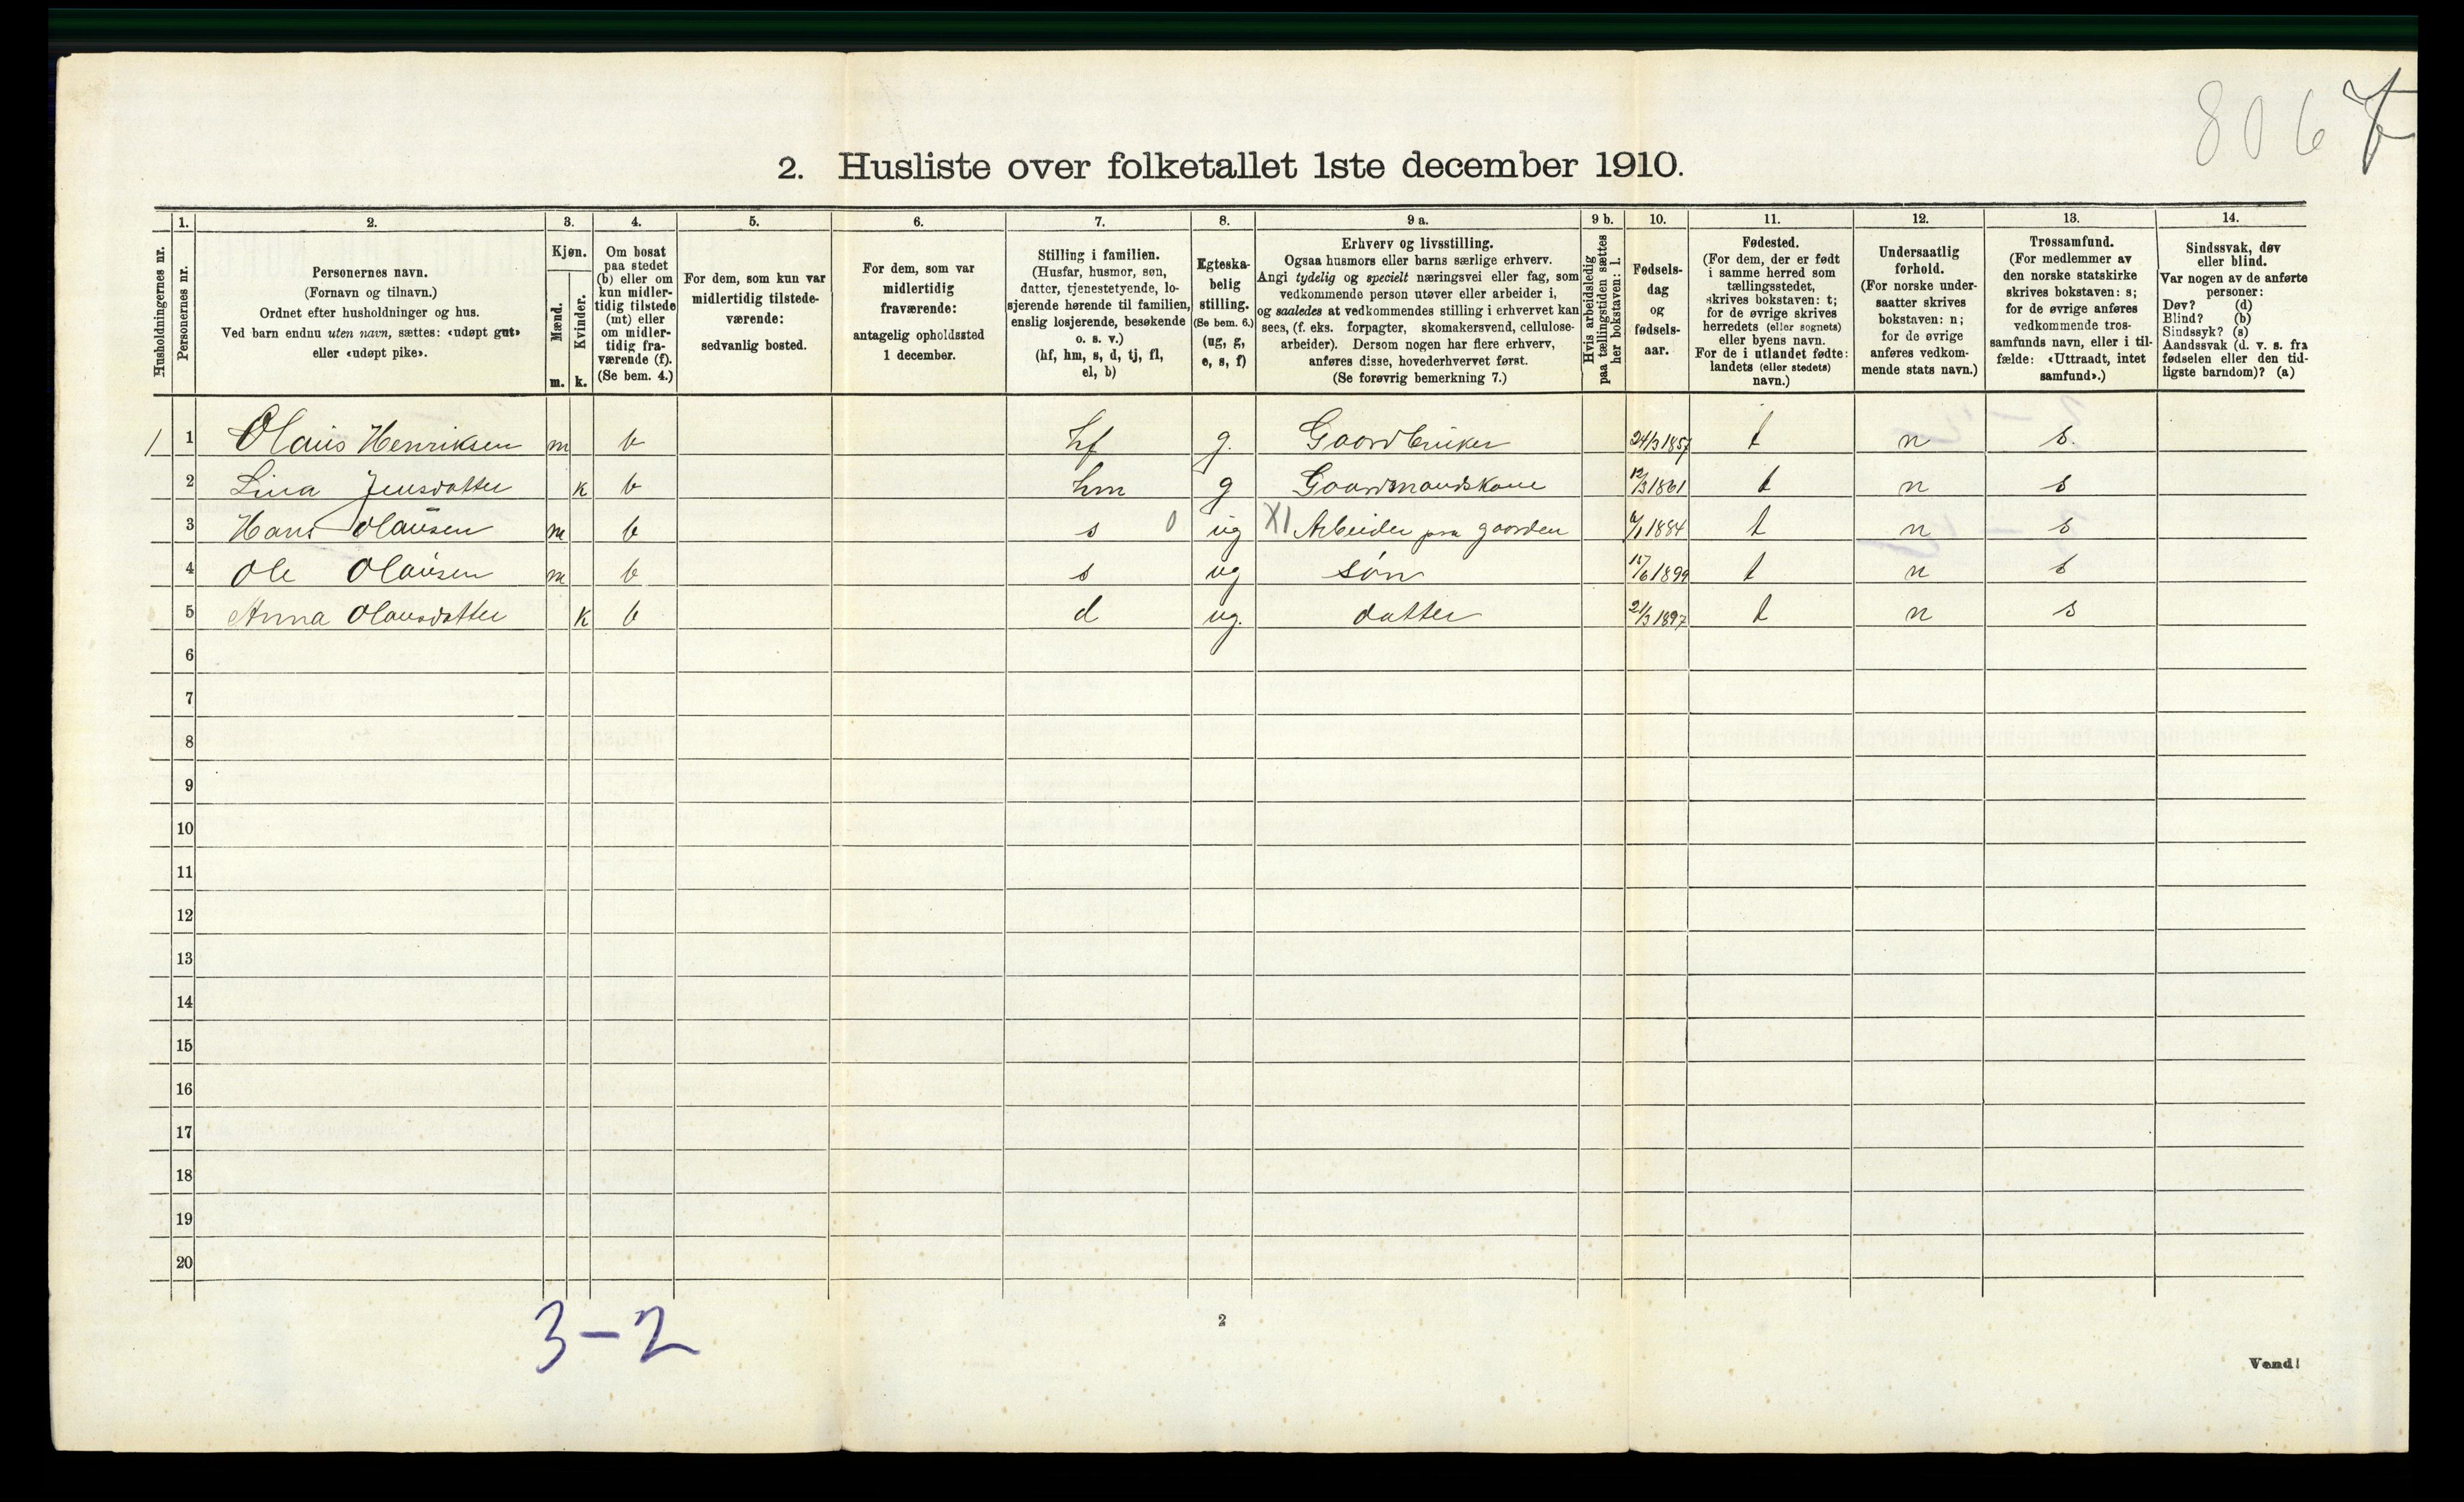 806
2. Husliste over folketallet 1ste december 1910.
Husholdningernes nr.
1.
Personernes nr.
2.
Personernes navn.
(Fornavn og tilnavn.)
Ordnet efter husholdninger og hus.
Ved barn endnu uten navn, sættes: «udøpt gut»
eller «udøpt pike».
3.
Kjøn.
Mænd.
m.
Kvinder.
k.
4.
Om bosat
paa stedet
(b) eller om
kun midler-
tidig tilstede
(mt) eller
om midler-
tidig fra-
værende (f).
(Se bem. 4.)
5.
For dem, som kun var
midlertidig tilstede-
værende:
sedvanlig bosted.
6.
For dem, som var
midlertidig
fraværende:
antagelig opholdssted
1 december.
7.
Stilling i familien.
(Husfar, husmor, søn,
datter, tjenestetyende, lo-
sjerende hørende til familien,
enslig losjerende, besøkende
o. s. v.)
(hf, hm, s, d, tj, fl,
el, b)
8.
Egteska-
belig
stilling.
(Se bem. 6.)
(ug, g,
e, s, f)
9 a.
Erhverv og livsstilling.
Ogsaa husmors eller barns særlige erhverv.
Angi tydelig og specielt næringsvei eller fag, som
vedkommende person utøver eller arbeider i,
og saaledes at vedkommendes stilling i erhvervet kan
sees, (f. eks. forpagter, skomakersvend, cellulose-
arbeider). Dersom nogen har flere erhverv,
anføres disse, hovederhvervet først.
(Se forøvrig bemerkning 7.)
9 b.
Hvis arbeidsledig
paa tællingstiden sættes
her bokstaven: l.
10.
Fødsels-
dag
og
fødsels-
aar.
11.
Fødested.
(For dem, der er født
i samme herred som
tællingsstedet,
skrives bokstaven: t;
for de øvrige skrives
herredets (eller sognets)
eller byens navn.
For de i utlandet fødte:
landets (eller stedets)
navn.)
12.
Undersaatlig
forhold.
(For norske under-
saatter skrives
bokstaven: n;
for de øvrige
anføres vedkom-
mende stats navn.)
13.
Trossamfund.
(For medlemmer av
den norske statskirke
skrives bokstaven: s;
for de øvrige anføres
vedkommende tros-
samfunds navn, eller i til-
fælde: «Uttraadt, intet
samfund».)
14.
Sindssvak, døv
eller blind.
Var nogen av de anførte
personer:
Døv? (d)
Blind? (b)
Sindssyk? (s)
Aandssvak (d. v. s. fra
fødselen eller den tid-
ligste barndom)? (a)
1 1 Olaus Henriksen m b hf g. Gaardbruker 24/3 1857 t n s.
2 Lina Jensdatter k b hm g Gaardmandskone 12/3 1861 t n s
3 Hans Olausen m b s 0 ug X1 Arbeider paa gaarden 1884 t n s
4 Ole Olausen m b s ug søn 15/6 1899 t n s
5 Anna Olausdatter k b d ug. datter 21/3 1897 t n s
6
7
8
9
10
11
12
13
14
15
16
17
18
19
20
3-2
2
Vend!